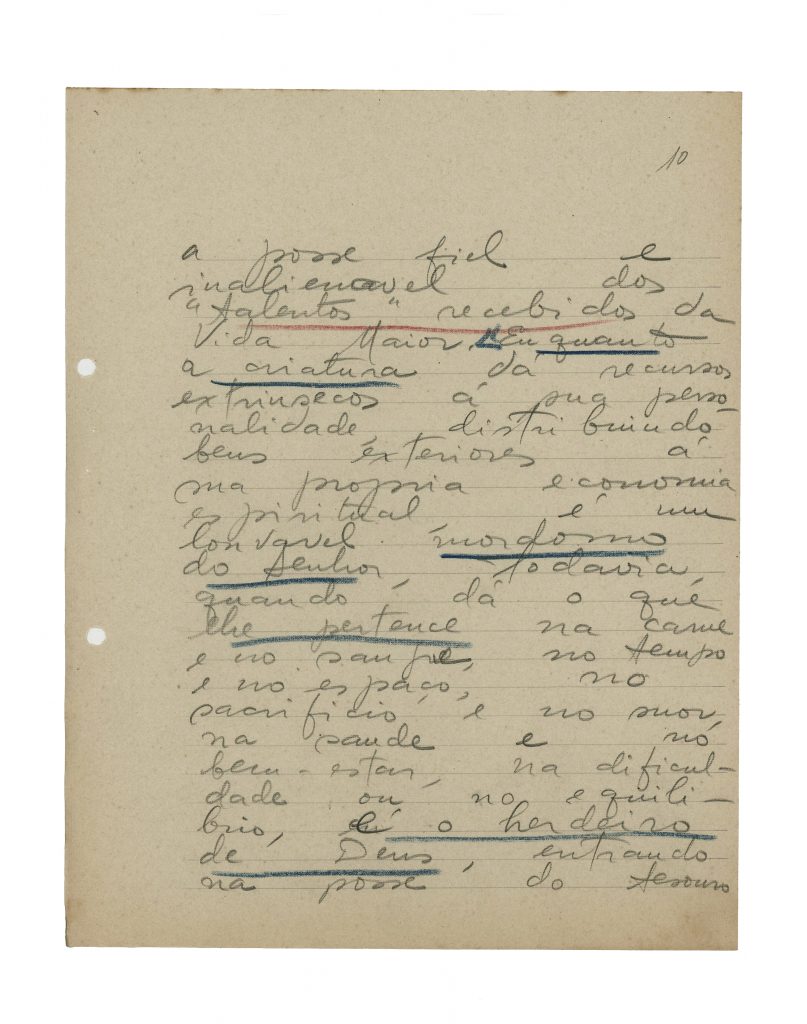 10
a posse fiel e
inalienavel dos
"talentos" recebidos da
Vida Maior. Enquanto
a criatura dá recursos
extrinsecos á sua perso-
nalidade, distribuindo
bens exteriores á
sua propria economia
espiritual é um
louvavel mordomo
do Senhor, todavia,
quando dá o que
lhe pertence na carne
e no sangue, no tempo
e no espaço, no
sacrificio e no suor,
na saude e no
bem-estar, na dificul-
dade ou no equili-
brio, é o herdeiro
de Deus, entrando
na posse do tesouro